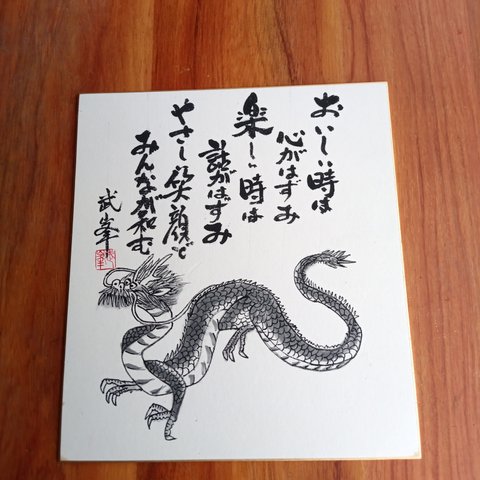 おいしい時は
心がはずみ
楽しい時は
話がはずみ
やさしい笑顔で
みんなが和む
武峯